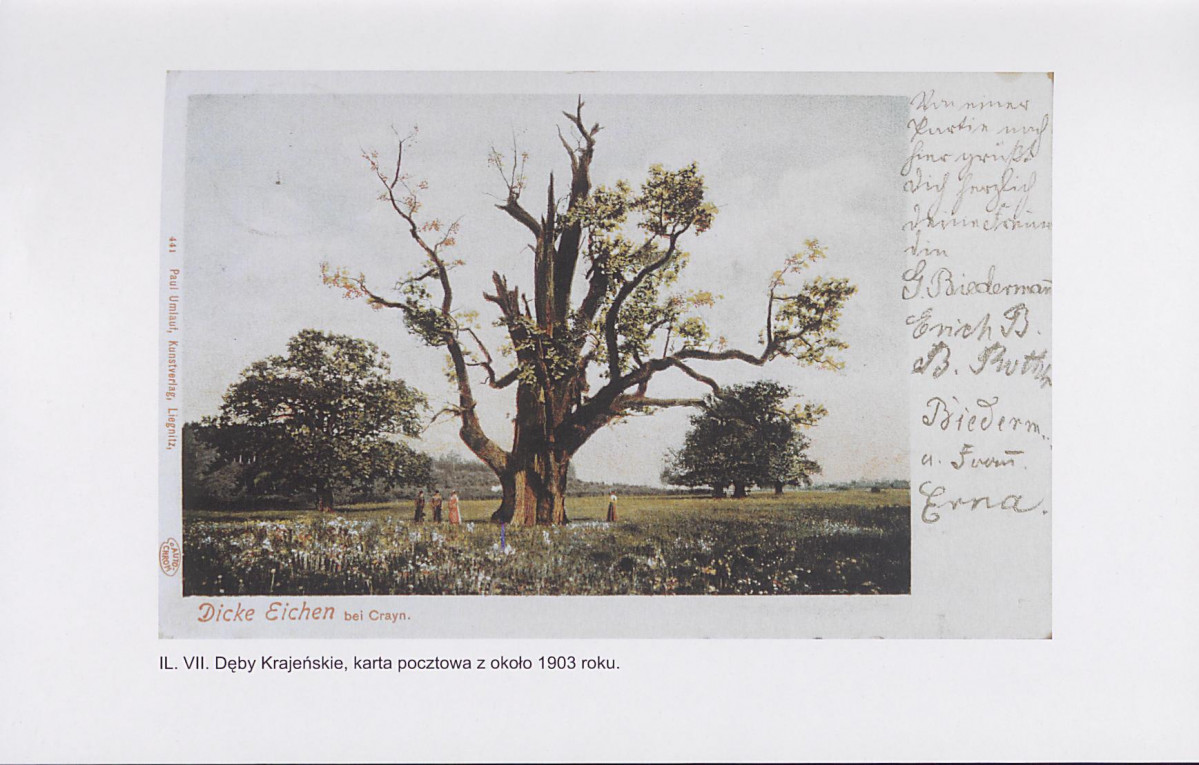 Von einer
Partie nach
hier grüßt
Dich herzlich
G. Biederman̄
Erich B.
B. Roth
Biederm.
u. Frau
Erna.
441 Paul Umlauf, Kunstverlag, Liegnitz,
AUTO
CHROM
Dicke Eichen bei Crayn.
IL. VII. Dęby Krajeńskie, karta pocztowa z około 1903 roku.